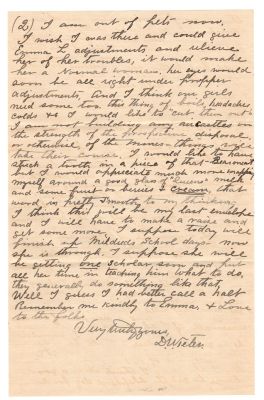 (2) I am out of pets now.
I wish I was there and could give
Emma L adjustments and relieve
her of her troubles, it would make
her a Normal woman, her eyes would
soon be all right under proper
adjustments, And I think our girls
need some too this thing of boils, headaches
colds & I would like to "cut them out"
I am not building any on
the strength of the disposal
or of the mines - things
take their course. I would like to have
stuck a tooth in a piece of that
but I would appreciate much more
myself around a good glass "Queen" milk
and some fruit or berries & cream, that
word in pretty smooth to my thinking.
I think this will be my last envelope
and I will have to make a raise and
get some more. I suppose today will
finish up Mildreds School days - now
she is through. I suppose she will
be getting one scholar soon and put
all her time in teaching him what to do,
they generally do something like that,
Well I guess I had better call a halt
Remember me kindly to Emma, & Love
to the folks
Very truly yours,